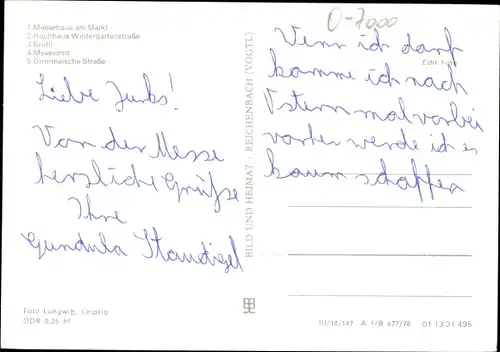 1 Messehaus am Markt
2 Hochhaus Wintergartenstraße
3 Brühl
4 Messeamt
5 Grimmaische Straße
Liebe Junks!
Von der Messe
herzliche Grüße
Ihre
Gundula Staudigel
Foto Lungwig, Leipzig
DDR 0,25 M
BILD UND HEIMAT · REICHENBACH (VOGTL)
O-7000
Echt Foto
Wenn ich darf
komme ich nach
Ostern mal vorbei
vorher werde ich es
kaum schaffen
III/18/197 A 1/B 677/78 01 13 31 495